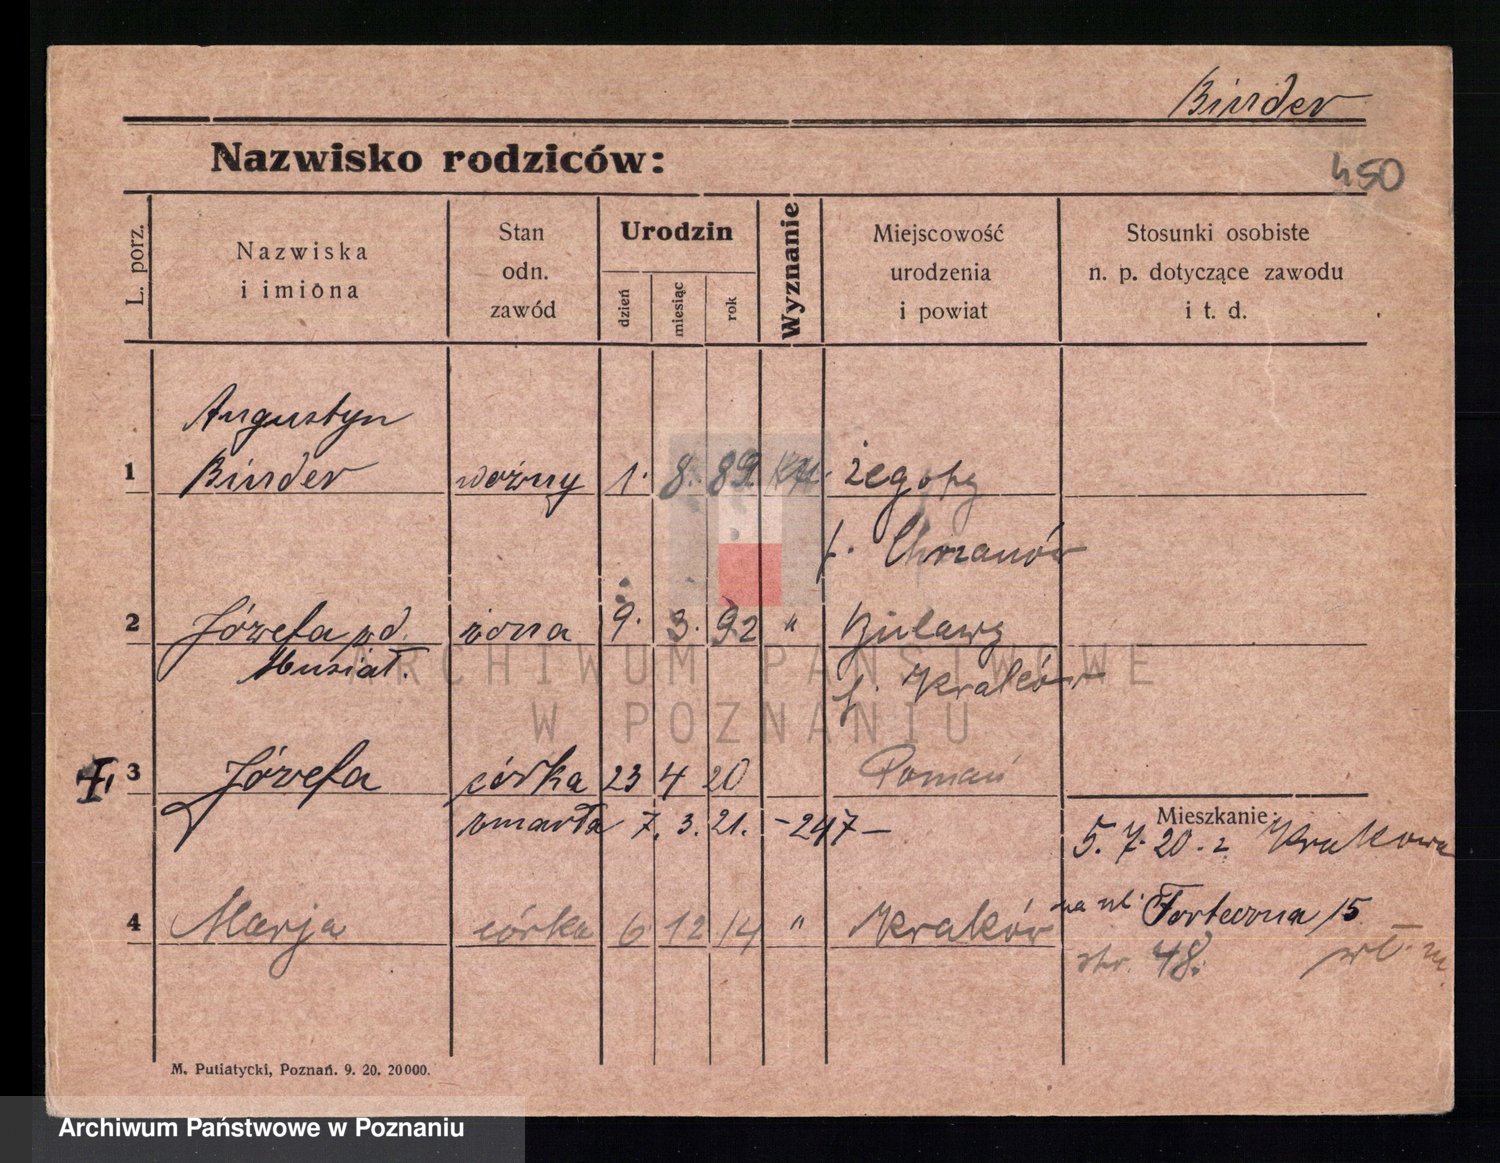 Binder
Nazwisko rodziców:
450
L. porz.
Nazwiska
i imiona
Stan
odn.
zawód
Urodzin
dzień
miesiąc
rok
Wyznanie
Miejscowość
urodzenia
i powiat
Stosunki osobiste
n. p. dotyczące zawodu
i t. d.
Augustyn
1 Binder woźny 1. 8. 89. kat. Żegoty
p. Chrzanów
2 Józefa żona 9. 3. 92 "
Musiał. p. Kraków
3 Józefa córka 23 4 20 Poznań
zmarła 7. 3. 21. - 247 -
Mieszkanie:
5. 7. 20. z Krakowa
na ul. Forteczna 15
4 Marja córka 6 12 14 " Kraków
str. 48.
M. Putiatycki, Poznań. 9. 20. 20000.
ARCHIWUM PAŃSTWOWE
W POZNANIU
Archiwum Państwowe w Poznaniu